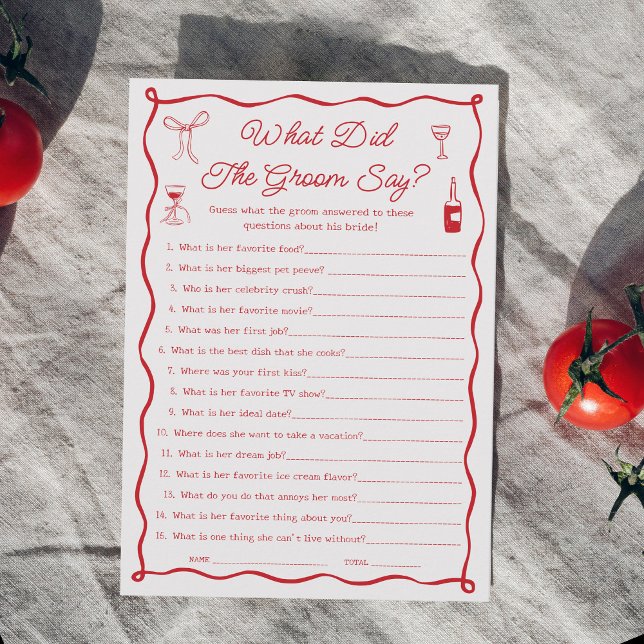 What Did
The Groom Say?
Guess what the groom answered to these
questions about his bride!
1. What is her favorite food?
2. What is her biggest pet peeve?
3. Who is her celebrity crush?
4. What is her favorite movie?
5. What was her first job?
6. What is the best dish that she cooks?
7. Where was your first kiss?
8. What is her favorite TV show?
9. What is her ideal date?
10. Where does she want to take a vacation?
11. What is her dream job?
12. What is her favorite ice cream flavor?
13. What do you do that annoys her most?
14. What is her favorite thing about you?
15. What is one thing she can't live without?
NAME TOTAL